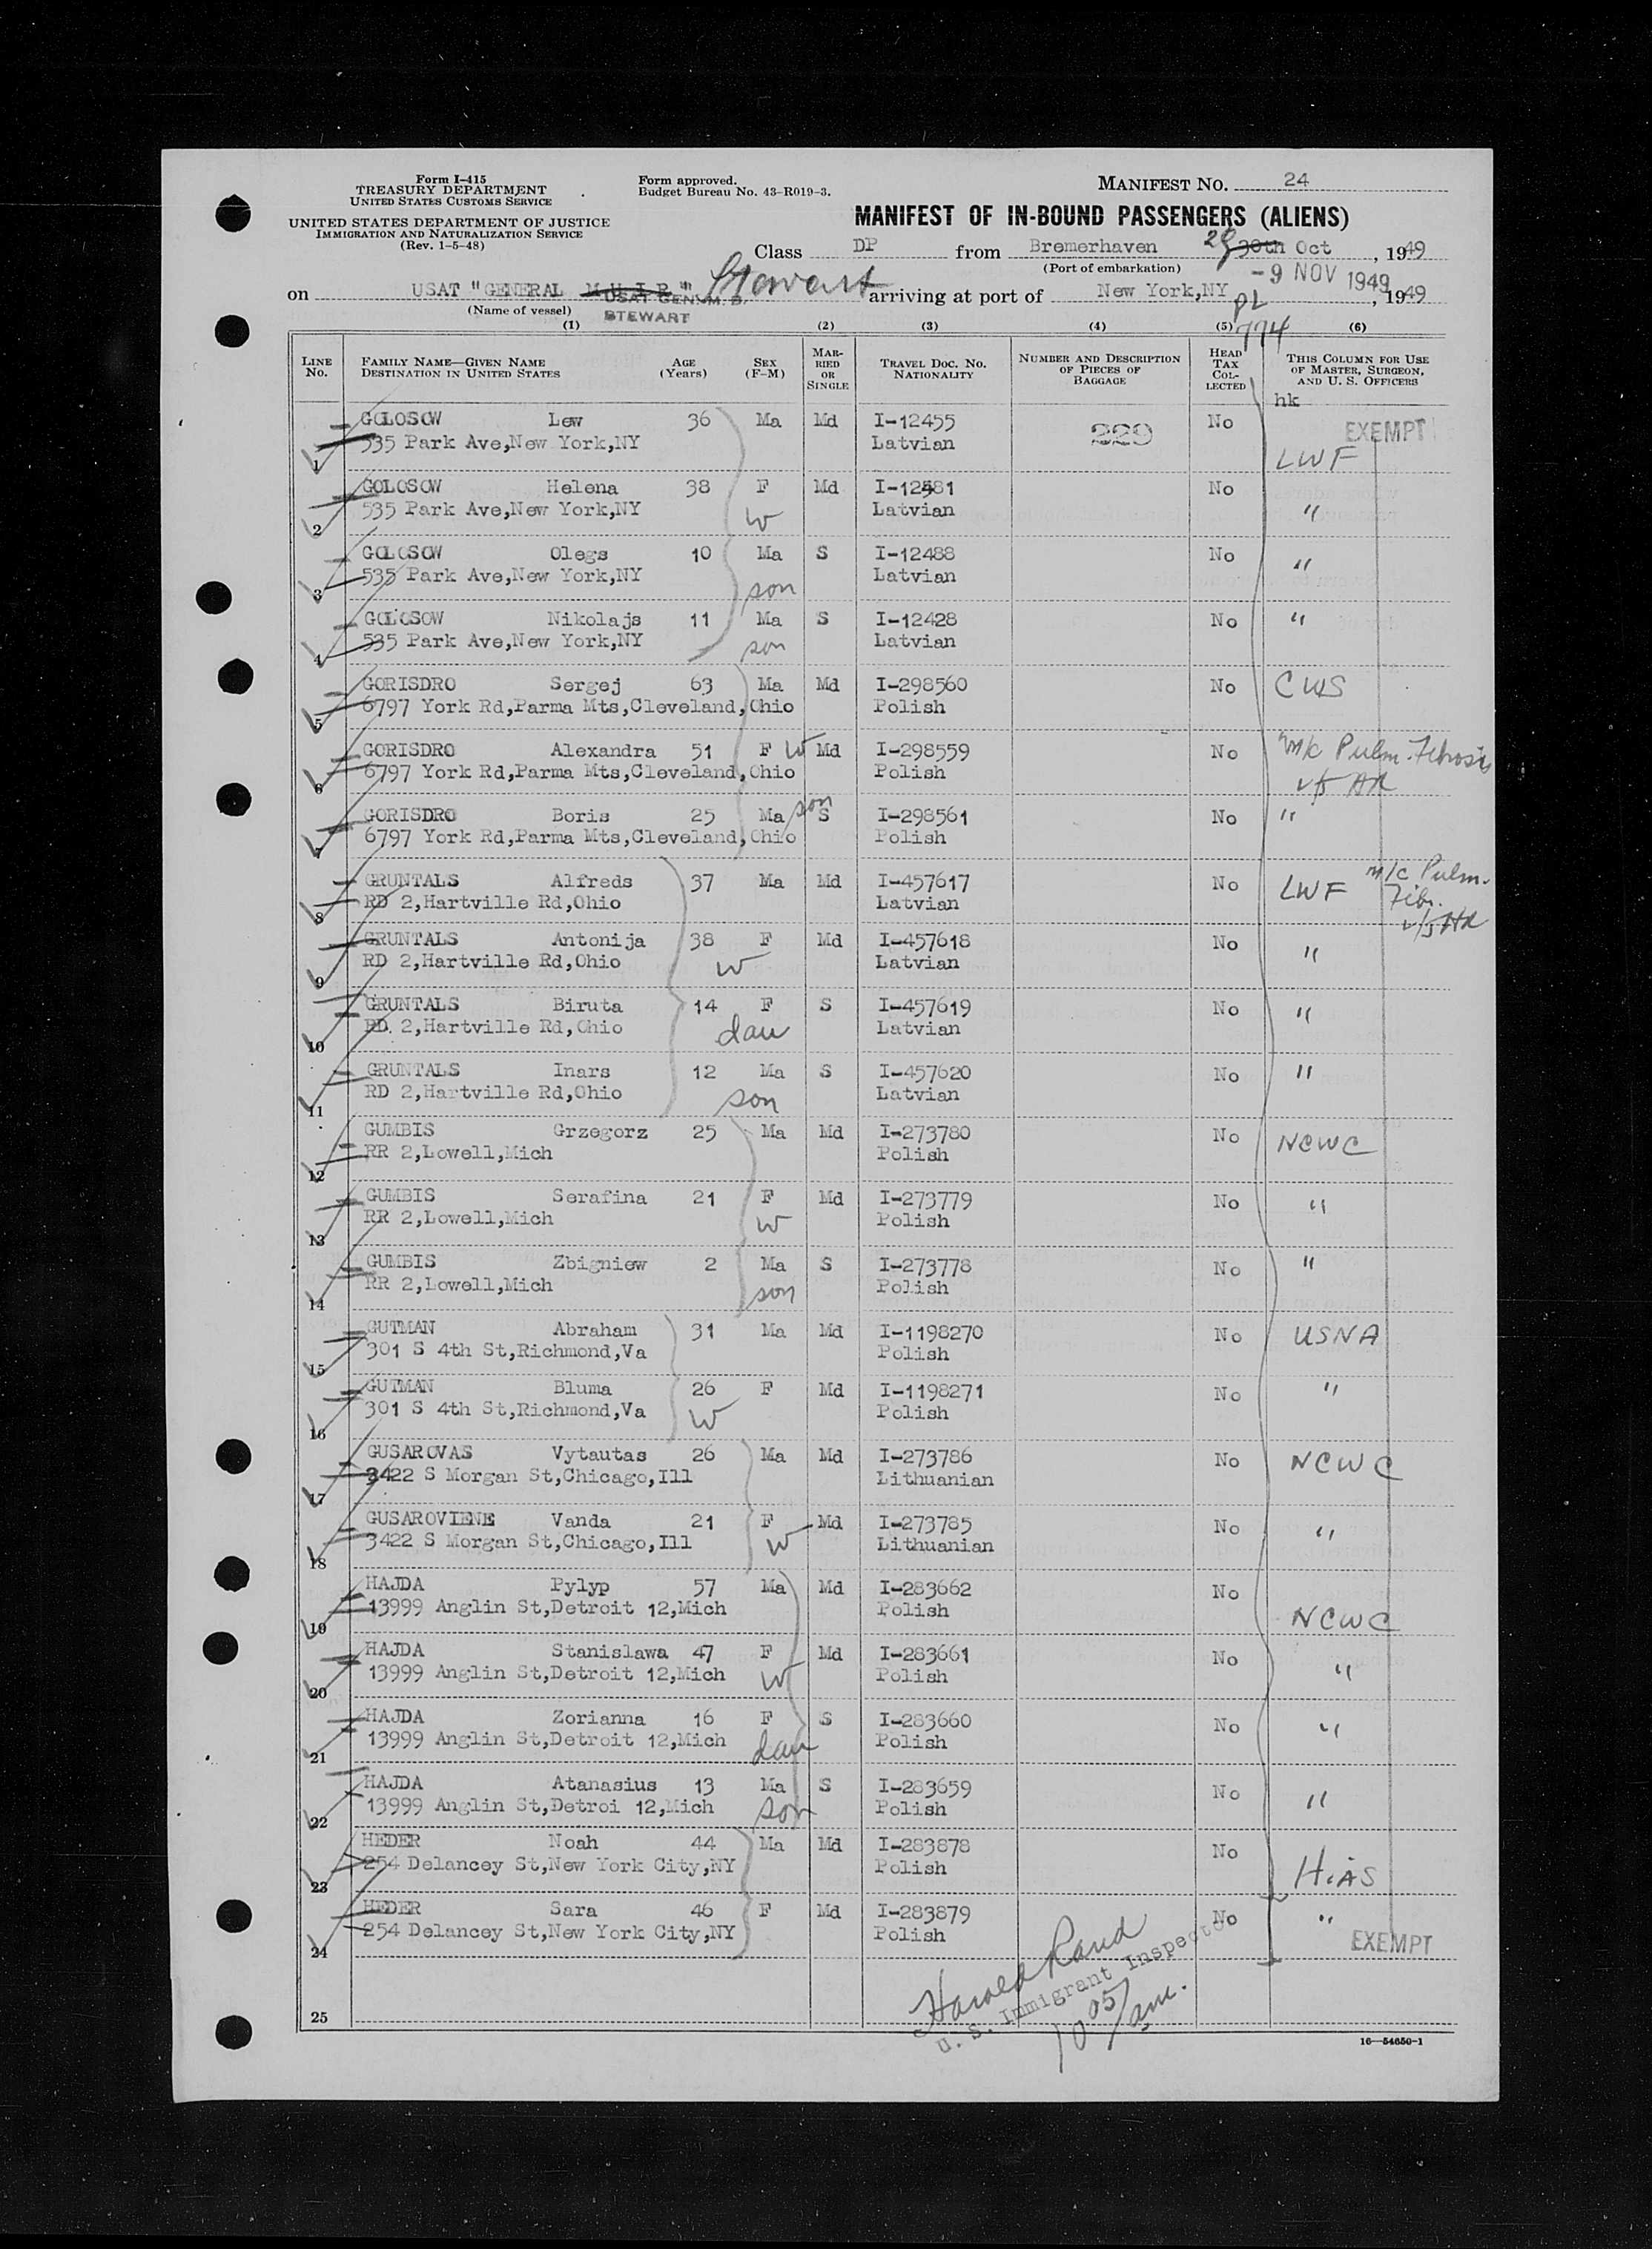 Form I-415
TREASURY DEPARTMENT
UNITED STATES CUSTOMS SERVICE
UNITED STATES DEPARTMENT OF JUSTICE
IMMIGRATION AND NATURALIZATION SERVICE
(Rev. 1-5-48)
Form approved.
Budget Bureau No. 43-R019-3.
MANIFEST NO. 24
MANIFEST OF IN-BOUND PASSENGERS (ALIENS)
Class DP from Bremerhaven 29 30th Oct, 1949
(Port of embarkation)
-9 NOV 1949
on USAT "GENERAL MUIR" Stewart arriving at port of New York,NY, 1949
(Name of vessel)
USAT GEN. M. B.
STEWART
PL
774
(1) (2) (3) (4) (5) (6)
LINE No.
FAMILY NAME—GIVEN NAME
DESTINATION IN UNITED STATES
AGE (Years)
SEX (F-M)
MARRIED OR SINGLE
TRAVEL DOC. NO.
NATIONALITY
NUMBER AND DESCRIPTION OF PIECES OF BAGGAGE
HEAD TAX COLLECTED
THIS COLUMN FOR USE OF MASTER, SURGEON, AND U. S. OFFICERS
hk
1 GOLOSOW Lew 36 Ma Md I-12455 229 No EXEMPT
535 Park Ave,New York,NY Latvian LWF
2 GOLOSOW Helena 38 F Md I-12481 No
535 Park Ave,New York,NY W Latvian "
3 GOLOSOW Olegs 10 Ma S I-12488 No
535 Park Ave,New York,NY son Latvian "
4 GOLOSOW Nikolajs 11 Ma S I-12428 No "
535 Park Ave,New York,NY son Latvian
5 GORISDRO Sergej 63 Ma Md I-298560 No CWS
6797 York Rd,Parma Mts,Cleveland,Ohio Polish
6 GORISDRO Alexandra 51 F W Md I-298559 No " m/c Pulm. Fibrosis
6797 York Rd,Parma Mts,Cleveland,Ohio Polish
7 GORISDRO Boris 25 Ma son S I-298561 No "
6797 York Rd,Parma Mts,Cleveland,Ohio Polish
8 GRUNTALS Alfreds 37 Ma Md I-457617 No LWF m/c Pulm. Fibr.
RD 2,Hartville Rd,Ohio Latvian
9 GRUNTALS Antonija 38 F Md I-457618 No
RD 2,Hartville Rd,Ohio W Latvian "
10 GRUNTALS Biruta 14 F S I-457619 No "
RD. 2,Hartville Rd,Ohio dau Latvian
11 GRUNTALS Inars 12 Ma S I-457620 No "
RD 2,Hartville Rd,Ohio son Latvian
12 GUMBIS Grzegorz 25 Ma Md I-273780 No NCWC
RR 2,Lowell,Mich Polish
13 GUMBIS Serafina 21 F Md I-273779 No "
RR 2,Lowell,Mich W Polish
14 GUMBIS Zbigniew 2 Ma S I-273778 No "
RR 2,Lowell,Mich son Polish
15 GUTMAN Abraham 31 Ma Md I-1198270 No USNA
301 S 4th St,Richmond,Va Polish
16 GUTMAN Bluma 26 F Md I-1198271 No "
301 S 4th St,Richmond,Va W Polish
17 GUSAROVAS Vytautas 26 Ma Md I-273786 No NCWC
3422 S Morgan St,Chicago,Ill Lithuanian
18 GUSAROVIENE Vanda 21 F Md I-273785 No "
3422 S Morgan St,Chicago,Ill W Lithuanian
19 HAJDA Pylyp 57 Ma Md I-283662 No
13999 Anglin St,Detroit 12,Mich Polish NCWC
20 HAJDA Stanislawa 47 F Md I-283661 No
13999 Anglin St,Detroit 12,Mich W Polish "
21 HAJDA Zorianna 16 F S I-283660 No "
13999 Anglin St,Detroit 12,Mich dau Polish
22 HAJDA Atanasius 13 Ma S I-283659 No "
13999 Anglin St,Detroi 12,Mich son Polish
23 HEDER Noah 44 Ma Md I-283878 No
254 Delancey St,New York City,NY Polish HIAS
24 HEDER Sara 46 F Md I-283879 No "
254 Delancey St,New York City,NY Polish EXEMPT
25
Harold Rand
U. S. Immigrant Inspector
10 05/am.
16—54650-1